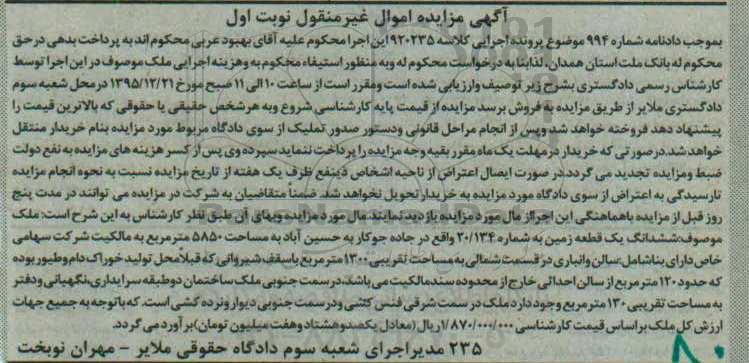 آگهی مزایده اموال غیرمنقول نوبت اول
بموجب دادنامه شماره ۹۹۴ موضوع پرونده اجرایی کلاسه ۹۲۰۲۳۵ این اجرا محکوم علیه آقای بهبود عربی محکوم اند به پرداخت بدهی در حق
محکوم له بانک ملت استان همدان، لذا بنا به درخواست محکوم له و به منظور استیفاء محکوم به و هزینه اجرایی ملک موصوف در این اجرا توسط
کارشناس رسمی دادگستری بشرح زیر توصیف وارزیابی شده است ومقرر است از ساعت ۱۰ الی ۱۱ صبح مورخ ۱۳۹۵/۱۲/۲۱ در محل شعبه سوم
دادگستری ملایر از طریق مزایده به فروش برسد مزایده از قیمت پایه کارشناسی شروع وبه هر شخص حقیقی یا حقوقی که بالاترین قیمت را
پیشنهاد دهد فروخته خواهد شد وپس از انجام مراحل قانونی ودستور صدور تملیک از سوی دادگاه مربوط مورد مزایده بنام خریدار منتقل
خواهد شد.در صورتی که خریدار در مهلت یک ماه مقرر بقیه وجه مزایده را پرداخت ننماید سپرده وی پس از کسر هزینه های مزایده به نفع دولت
ضبط ومزایده تجدید می گردد.در صورت ایصال اعتراض از ناحیه اشخاص ذینفع ظرف یک هفته از تاریخ مزایده نسبت به نحوه انجام مزایده
تا رسیدگی به اعتراض از سوی دادگاه مورد مزایده به خریدار تحویل نخواهد شد. ضمناً متقاضیان به شرکت در مزایده می توانند در مدت پنج
روز قبل از مزایده باهماهنگی این اجرا از مال مورد مزایده بازدید نمایند مال مورد مزایده وبهای آن طبق نظر کارشناس به این شرح است: ملک
موصوف:ششدانگ یک قطعه زمین به شماره ۲۰/۱۳۴ واقع در جاده جوکار به حسین آباد به مساحت ۵۸۵۰ متر مربع به مالکیت شرکت سهامی
خاص دارای بنا شامل:سالن وانباری در قسمت شمالی به مساحت تقریبی ۱۳۰۰ متر مربع باسقف شیروانی که قبلا محل تولید خوراک دام وطیور بوده
که حدود ۱۲۰ متر مربع از سالن احداثی خارج از محدوده سند مالکیت می باشد.در سمت جنوبی ملک ساختمان دو طبقه سرایداری،نگهبانی ودفتر
به مساحت تقریبی ۱۳۰ متر مربع وجود دارد ملک در سمت شرقی فنس کشی ودر سمت جنوبی دیوار ونرده کشی است. که باتوجه به جمیع جهات
ارزش کل ملک بر اساس قیمت کارشناسی ۱/۸۷۰/۰۰۰/۰۰۰ ریال (معادل یکصدوهشتاد وهفت میلیون تومان) برآورد می گردد.
۲۳۵ مدیر اجرای شعبه سوم دادگاه حقوقی ملایر - مهران نوبخت